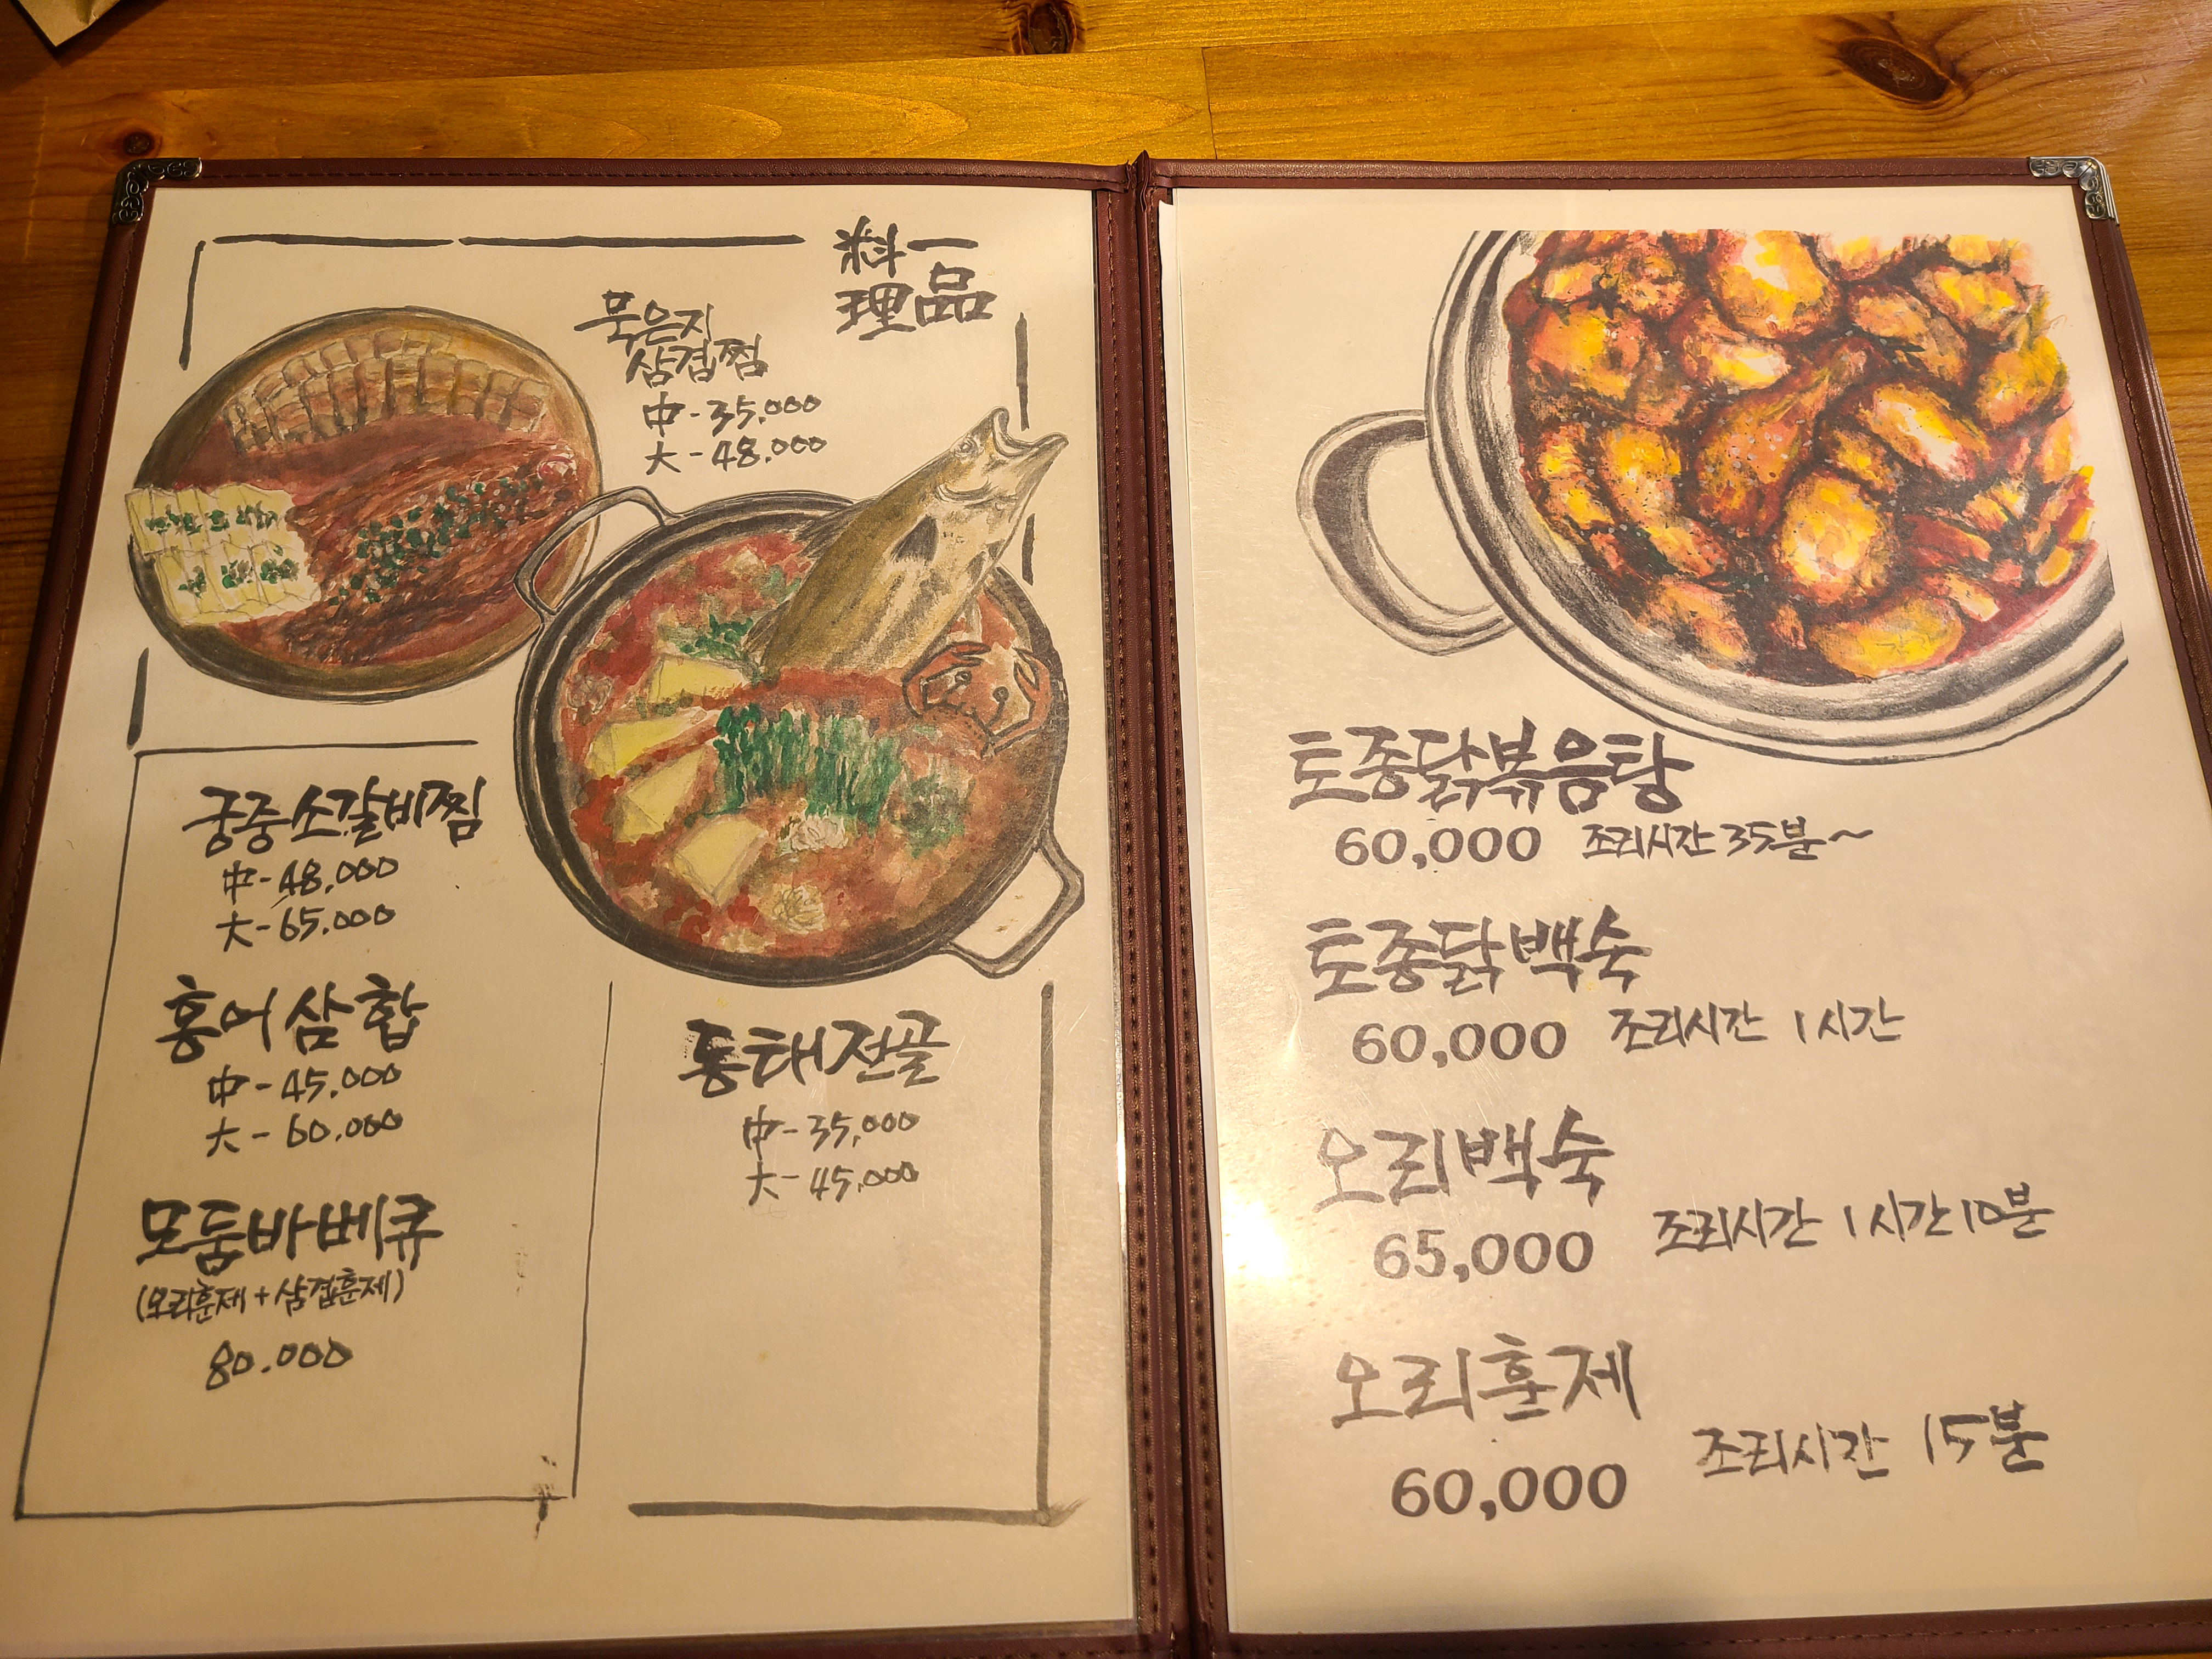 一品
料理
묵은지
삼겹찜
中-35,000
大-48,000
궁중소갈비찜
中-48,000
大-65,000
홍어삼합
中-45,000
大-60,000
모둠바베큐
(오리훈제+삼겹훈제)
80,000
동태전골
中-35,000
大-45,000
토종닭볶음탕
60,000 조리시간 35분~
토종닭백숙
60,000 조리시간 1시간
오리백숙
65,000 조리시간 1시간10분
오리훈제
60,000 조리시간 15분